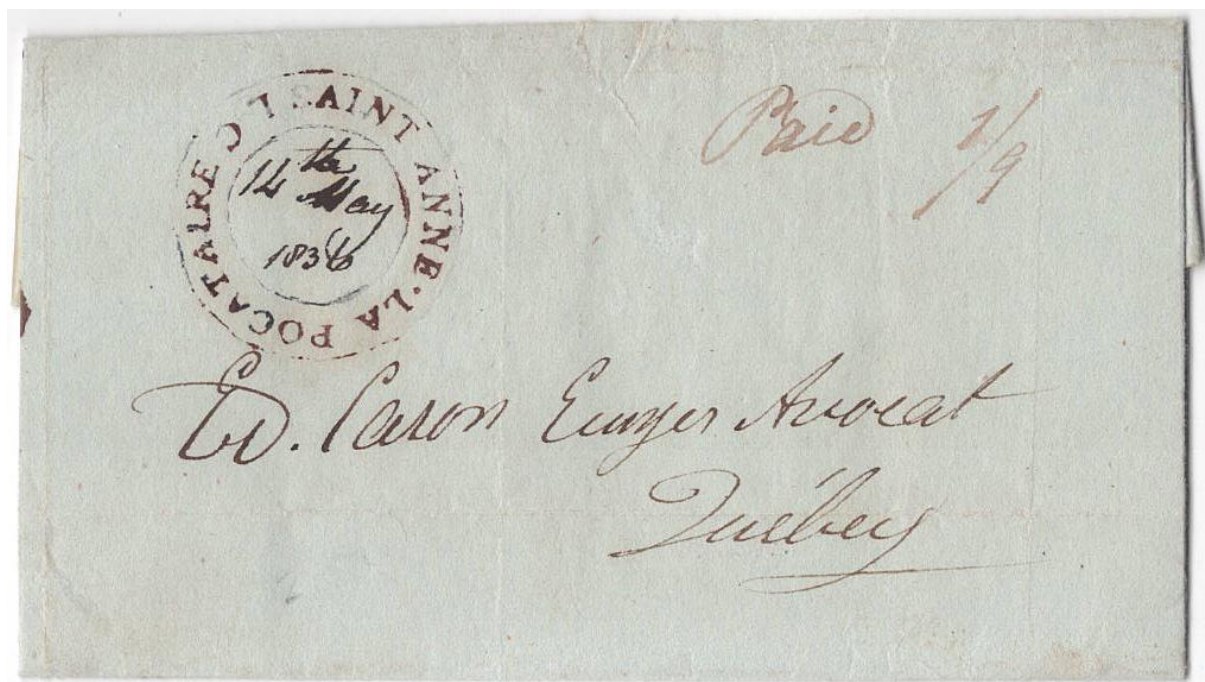 SAINT ANNE·LA POCATAIRE
14th
May
1836
Paid 1/9
Ed. Caron Ecuyer Avocat
Québec